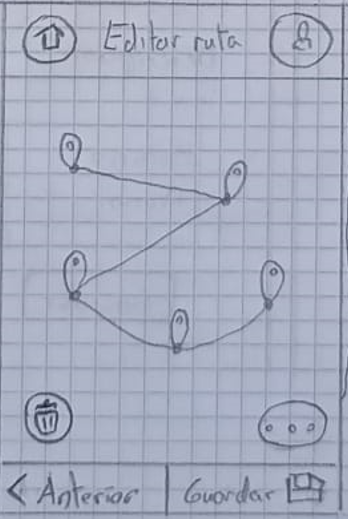 Editar ruta
< Anterior | Guardar